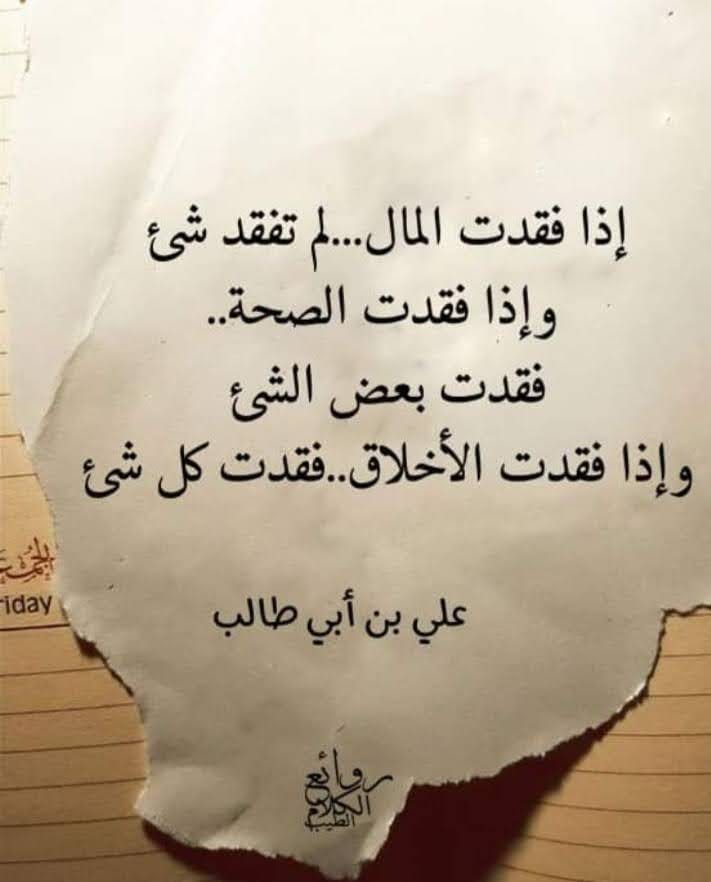 إذا فقدت المال...لم تفقد شئ
وإذا فقدت الصحة..
فقدت بعض الشئ
وإذا فقدت الأخلاق..فقدت كل شئ
riday
علي بن أبي طالب
روائع
الكلام
الطيب